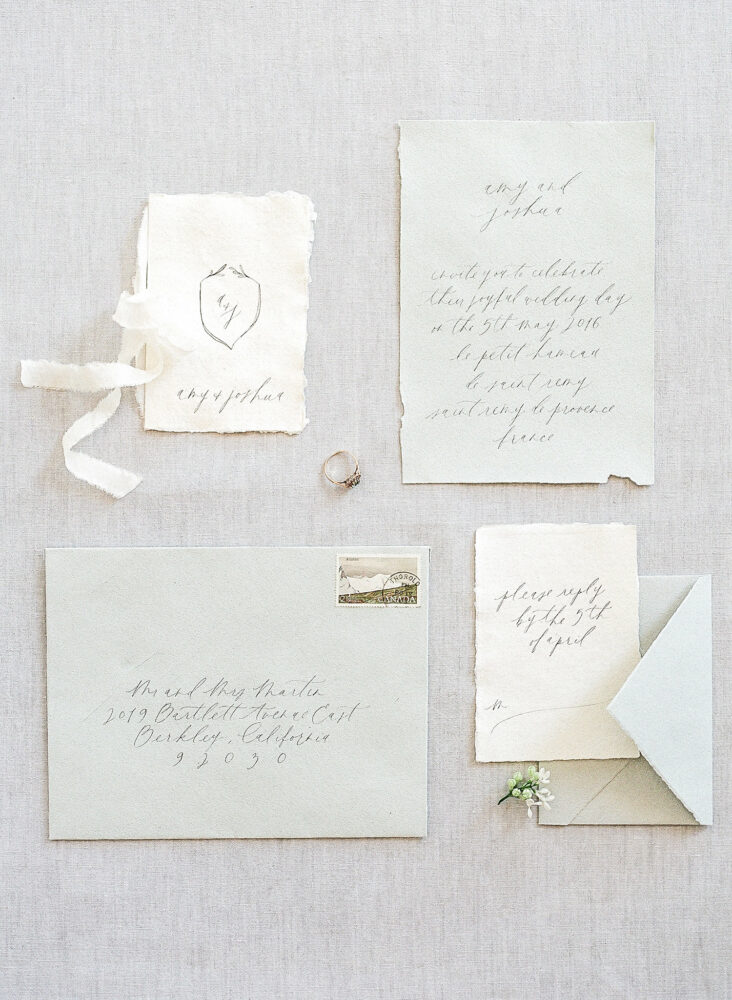 a+j
amy + joshua
amy and
joshua
invite you to celebrate
their joyful wedding day
on the 5th may 2016
le petit hameau
de saint remy
saint remy de provence
france
THOROLD
CANADA
Mr and Mrs Martin
2019 Bartlett Avenue East
Berkley, California
92030
please reply
by the 5th
of april
M